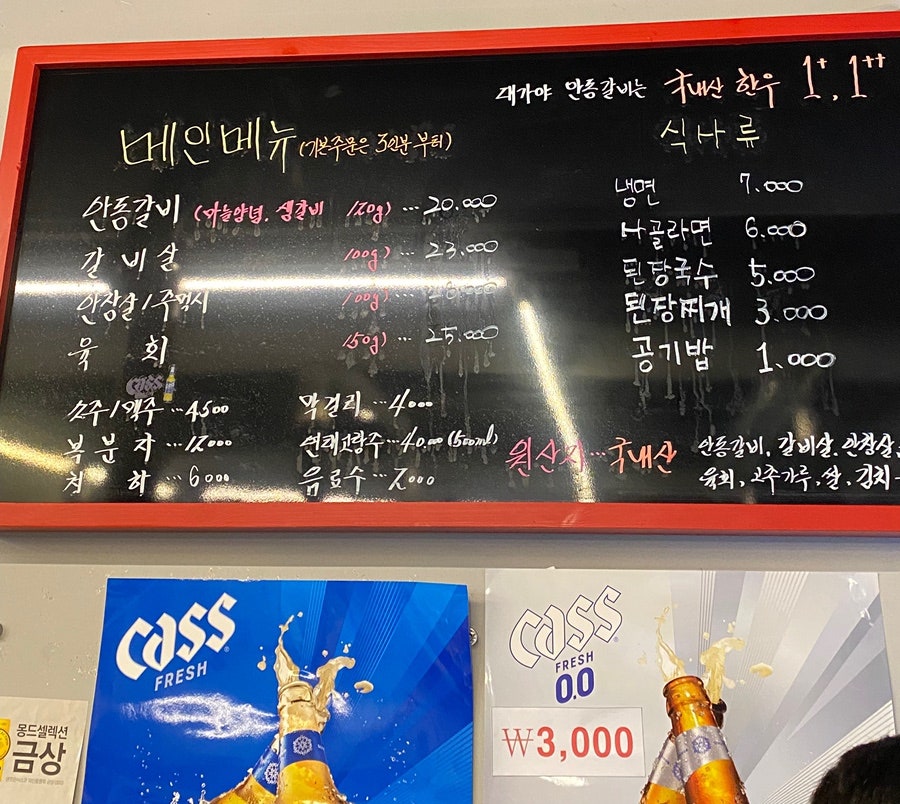 대가야 안동갈비는 국내산 한우 1+, 1++
메인메뉴 (기본주문은 3인분 부터)
안동갈비 (마늘양념, 생갈비 120g) ... 20.000
갈비살 100g) ... 23.000
안창살 / 주먹시 100g) ... 28.000
육회 150g) ... 25.000
Cass
소주 / 맥주 ... 4500
복분자 ... 12.000
청하 ... 6000
막걸리 ... 4000
연태고량주 ... 40.000 (500ml)
음료수 ... 2.000
식사류
냉면 7.000
사골라면 6.000
된장국수 5.000
된장찌개 3.000
공기밥 1.000
원산지 ... 국내산
안동갈비, 갈비살, 안창살
육회, 고추가루, 쌀, 김치
Cass
FRESH
Cass
FRESH
0.0
₩3,000
몽드셀렉션
금상